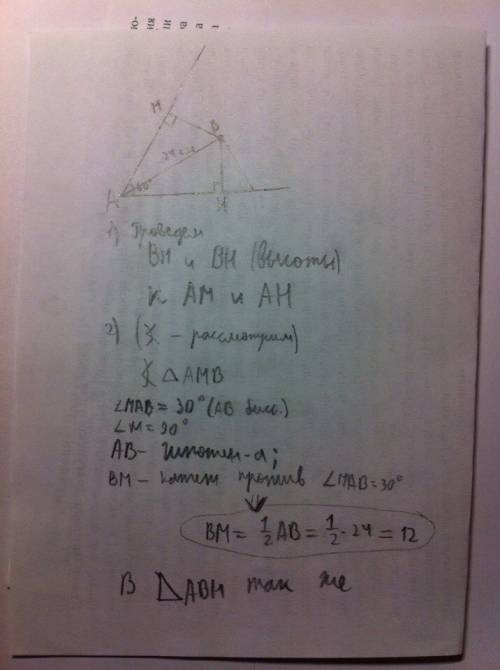 ю-
ия
ли
ча
а
M
B
24 см
60°
A
H
1) Проведем
BM и BH (высоты)
к AM и AH
2) ( – рассмотрим)
△AMB
∠MAB = 30° (AB бисс.)
∠M = 90°
AB – гипотен-а;
BM – катет против ∠MAB = 30°
⇓
BM = 1/2 AB = 1/2 · 24 = 12
В △ABH так же